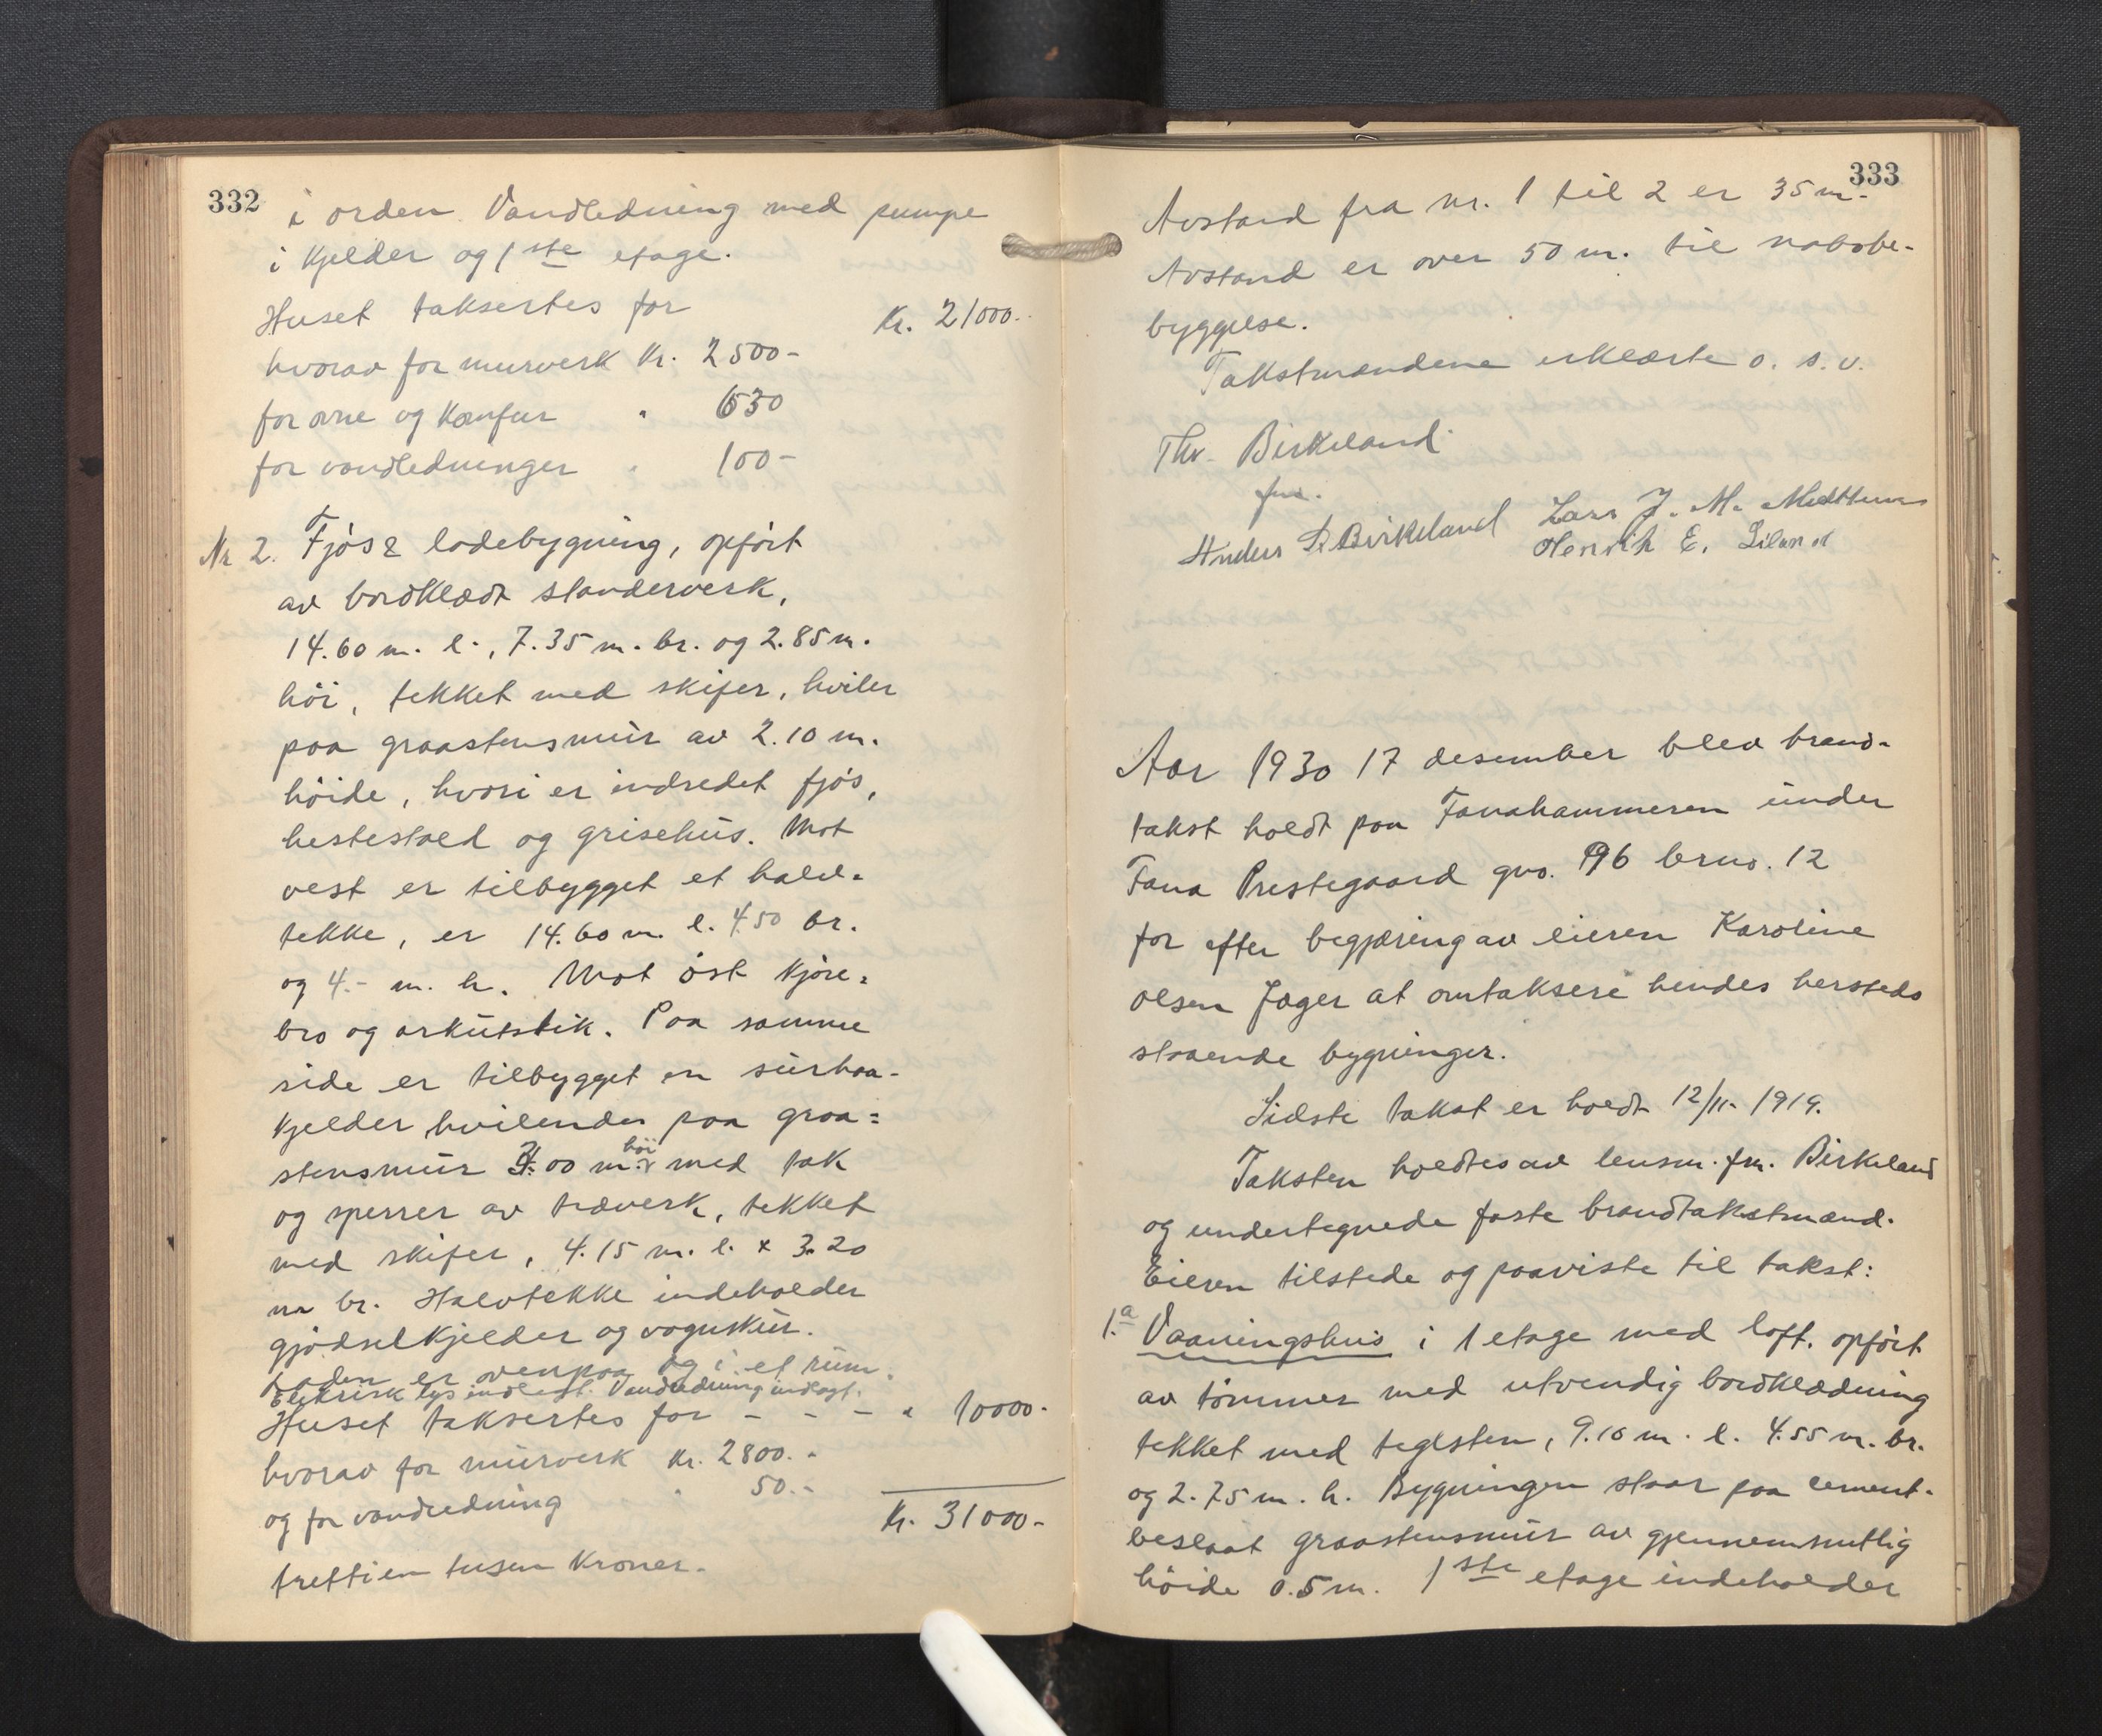 332
i orden. Vandledning med pumpe
i kjelder og 1ste etage.
Huset taksertes for Kr. 21000.-
hvorav for murverk Kr. 2500-
for ovne og komfur " 650
for vandledninger " 100-
Nr 2. Fjøs & ladebygning, opført
av bordklædt stenderverk,
14.60 m. l., 7.35 m. br. og 2.85 m.
høi, tekket med skifer, hviler
paa graastensmur av 2.10 m.
høide, hvori er indredet fjøs,
hestestald og grisehus. Mot
vest er tilbygget et halv-
tekke, er 14.60 m. l. 4.50 br.
og 4.- m. h. Mot øst kjøre-
bro og arkutstik. Paa samme
side er tilbygget en surhaa-
kjelder hvilende paa graa-
stensmur 3.00 m. høi med tak
og sperrer av træverk, tekket
med skifer, 4.15 m. l. x 3.20
m br. Halvtekke indeholder
gjødselkjelder og vognskur.
Laden er ovenpaa og i et rum.
Elektrisk lys indlagt. Vandledning indlagt.
Huset taksertes for - - - " 10000.
hvorav for murverk Kr. 2800.-
og for vandledning " 50.-
Kr. 31000-
trettien tusen kroner.
333
Avstand fra nr. 1 til 2 er 35 m.
Avstand er over 50 m. til nabobe-
byggelse.
Takstmændene erklærte o. s. v.
Thv. Birkeland
fm.
Lars J. M. Midttun
Anders Birkeland Henrik E. Liland
Aar 1930 17 desember blev brand-
takst holdt paa Fanahammeren under
Fana Prestegaard gno. 96 brno. 12
for efter begjæring av eieren Karoline
Olsen Jæger at omtaksere hendes hersteds
staaende bygninger.
Sidste takst er holdt 12/11- 1919.
Taksten holdtes av lensm. fm. Birkeland
og undertegnede faste brandtakstmænd.
Eieren tilstede og paaviste til takst:
1.a Vaaningshus i 1 etage med loft. opført
av tømmer med utvendig bordklædning
tekket med teglsten, 9.10 m. l. 4.55 m. br.
og 2.75 m. h. Bygningen staar paa cement-
beslaat graastensmur av gjennemsnitlig
høide 0.5 m. 1ste etage indeholder